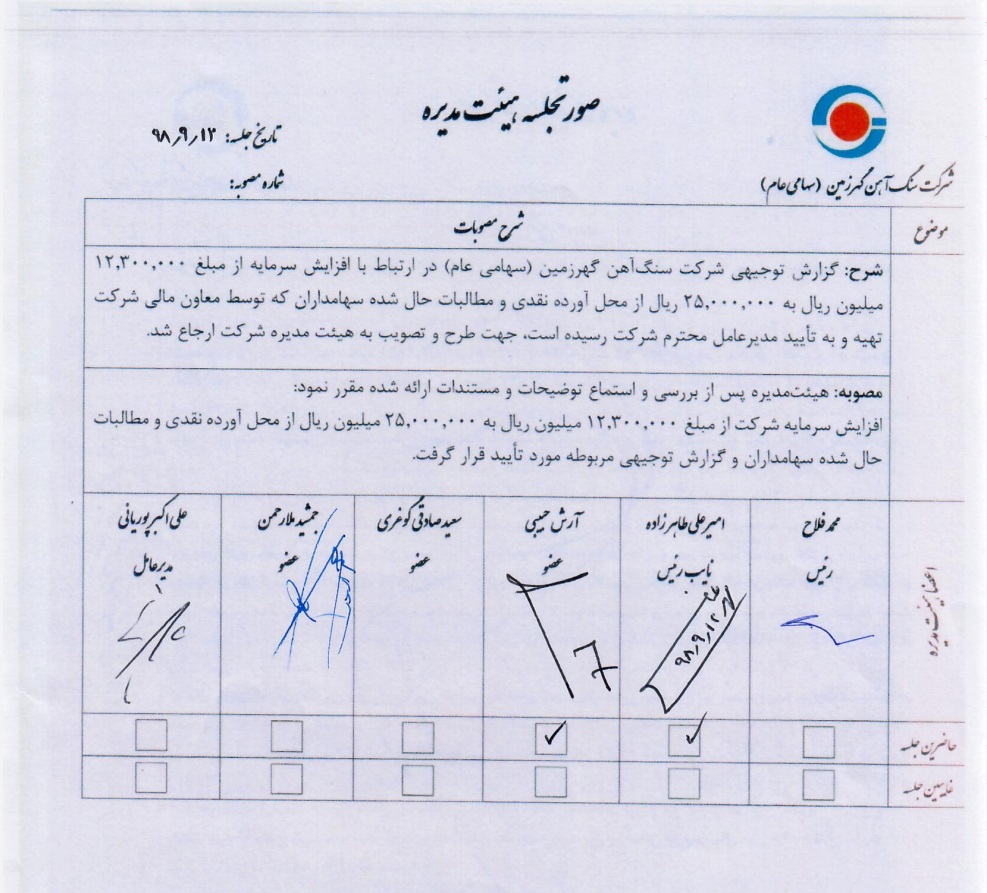 صورتجلسه هیئت مدیره
تاریخ جلسه: ۹۸٫۹٫۱۲
شماره مصوبه:
شرکت سنگ‌آهن گهرزمین (سهامی عام)
موضوع
شرح مصوبات
شرح: گزارش توجیهی شرکت سنگ‌آهن گهرزمین (سهامی عام) در ارتباط با افزایش سرمایه از مبلغ ۱۲,۳۰۰,۰۰۰
میلیون ریال به ۲۵,۰۰۰,۰۰۰ ریال از محل آورده نقدی و مطالبات حال شده سهامداران که توسط معاون مالی شرکت
تهیه و به تأیید مدیرعامل محترم شرکت رسیده است، جهت طرح و تصویب به هیئت مدیره شرکت ارجاع شد.
مصوبه: هیئت‌مدیره پس از بررسی و استماع توضیحات و مستندات ارائه شده مقرر نمود:
افزایش سرمایه شرکت از مبلغ ۱۲,۳۰۰,۰۰۰ میلیون ریال به ۲۵,۰۰۰,۰۰۰ میلیون ریال از محل آورده نقدی و مطالبات
حال شده سهامداران و گزارش توجیهی مربوطه مورد تأیید قرار گرفت.
اعضا هیئت مدیره
محمد فلاح
رئیس
امیرعلی طاهرزاده
نایب رئیس
۹۸٫۹٫۱۲
آرش حبیبی
عضو
سعید صادقی گوغری
عضو
جمشید ملارحمن
عضو
علی اکبر پوریانی
مدیرعامل
حاضرین جلسه
غایبین جلسه